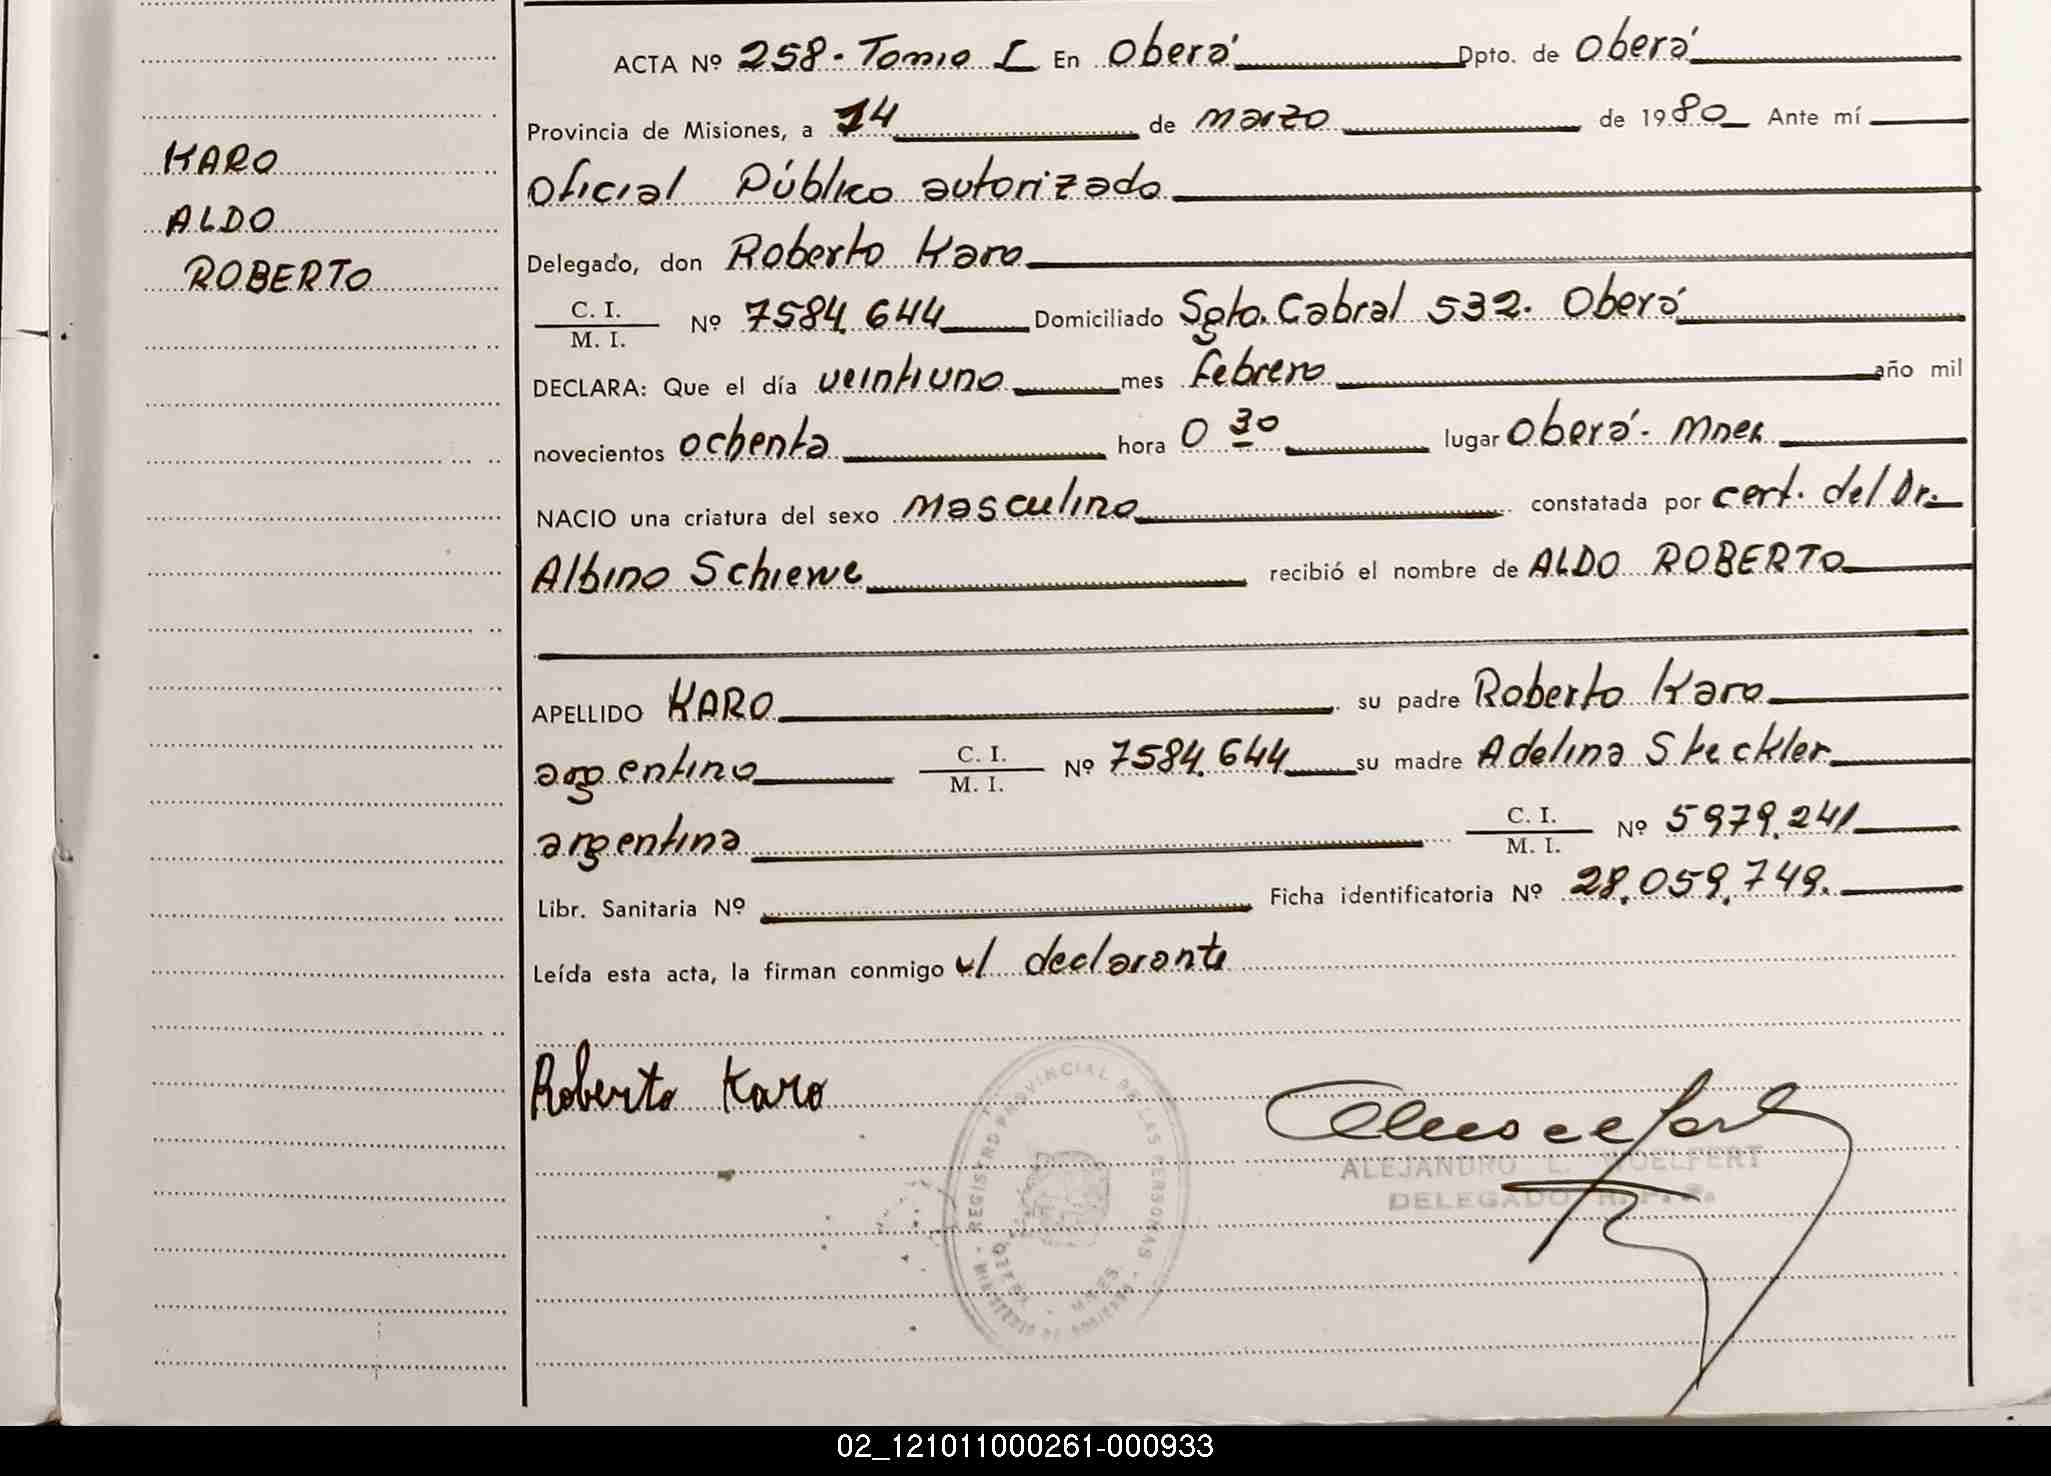 KARO
ALDO
ROBERTO
ACTA Nº 258 - Tomo I En Oberá Dpto. de Oberá
Provincia de Misiones, a 14 de marzo de 1980 Ante mí
Oficial Público autorizado
Delegado, don Roberto Karo
C. I.
M. I. Nº 7584.644 Domiciliado Sgto. Cabral 532. Oberá
DECLARA: Que el día veintiuno mes febrero año mil
novecientos ochenta hora 0 30 lugar Oberá - Mnes.
NACIO una criatura del sexo masculino constatada por cert. del Dr.
Albino Schiewe recibió el nombre de ALDO ROBERTO
APELLIDO KARO su padre Roberto Karo
argentino C. I.
M. I. Nº 7584.644 su madre Adelina Steckler
argentina C. I.
M. I. Nº 5979.241
Libr. Sanitaria Nº Ficha identificatoria Nº 28.059.749.
Leída esta acta, la firman conmigo el declarante
Roberto Karo
REGISTRO PROVINCIAL DE LAS PERSONAS
MINISTERIO DE GOBIERNO
OBERÁ - MNES.
ALEJANDRO L. WOELFERT
DELEGADO R. P. P.
02_121011000261-000933